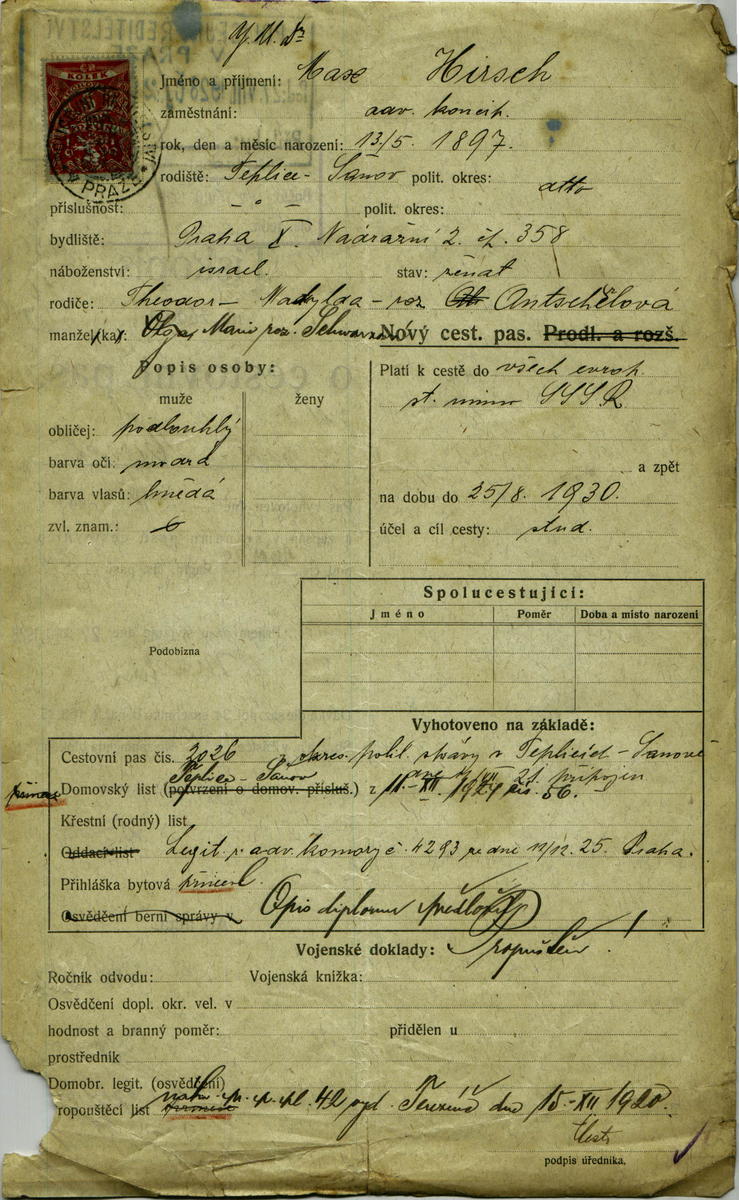 J.U.Dr
KOLEK
PRAZE
Jméno a příjmení: Max Hirsch
zaměstnání: adv. koncip.
rok, den a měsíc narození: 13/5. 1897.
rodiště: Teplice - Šanov polit. okres: dtto
příslušnost: - " - polit. okres:
bydliště: Praha X. Nádražní 2. čp. 358
náboženství: israel. stav: ženat
rodiče: Theodor - roz Antschelová
manžel(ka): Olga Marie roz. Nový cest. pas. Prodl. a rozš.
Popis osoby: Platí k cestě do všech evrop.
muže ženy st. mimo SSSR
obličej: podlouhlý
barva očí: modrá a zpět
barva vlasů: hnědá na dobu do 25/8. 1930.
zvl. znam.: účel a cíl cesty: stud.
Spolucestující:
Jméno Poměr Doba a místo narození
Podobizna
Vyhotoveno na základě:
Cestovní pas čís. 2026 z okres. polit. správy v Teplicích - Šanově
Teplice - Šanov
Domovský list (potvrzení o domov. přísluš.) z 11. XII. čís. 56.
připojen
Křestní (rodný) list
Oddací list Legit. adv. komory č. 4293 ze dne 25. Praha.
Přihláška bytová
Osvědčení berní správy v Opis diplomu předložil
Vojenské doklady: Propuštěn!
Ročník odvodu: Vojenská knížka:
Osvědčení dopl. okr. vel. v
hodnost a branný poměr: přidělen u
prostředník
Domobr. legit. (osvědčení)
ropouštěcí list p. pl. 42 vyd. Terezín dne 15 - XII 1920.
podpis úředníka.